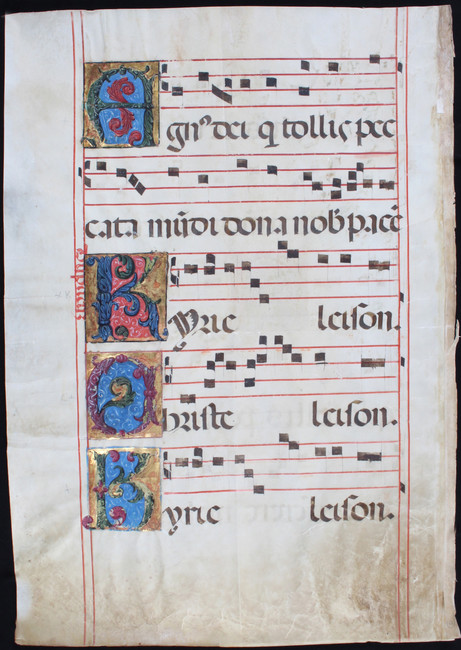 Agnꝰ dei q tollis pec
cata mūdi dona nob pacē
Kyrie leison.
Christe leison.
Kyrie leison.